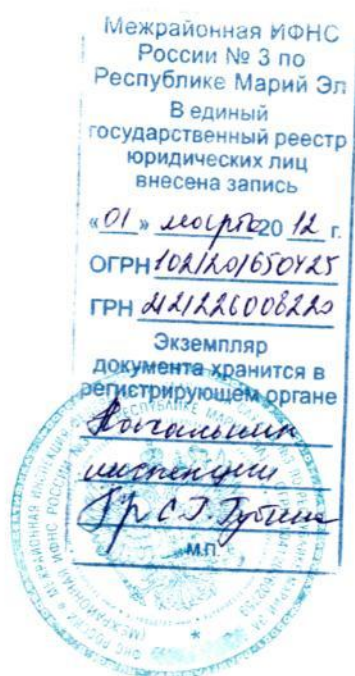 Межрайонная ИФНС
России № 3 по
Республике Марий Эл
В единый
государственный реестр
юридических лиц
внесена запись
«01» марта 2012 г.
ОГРН 1021201650425
ГРН 2121226008220
Экземпляр
документа хранится в
регистрирующем органе
Начальник
инспекции
С.Г.
М.П.